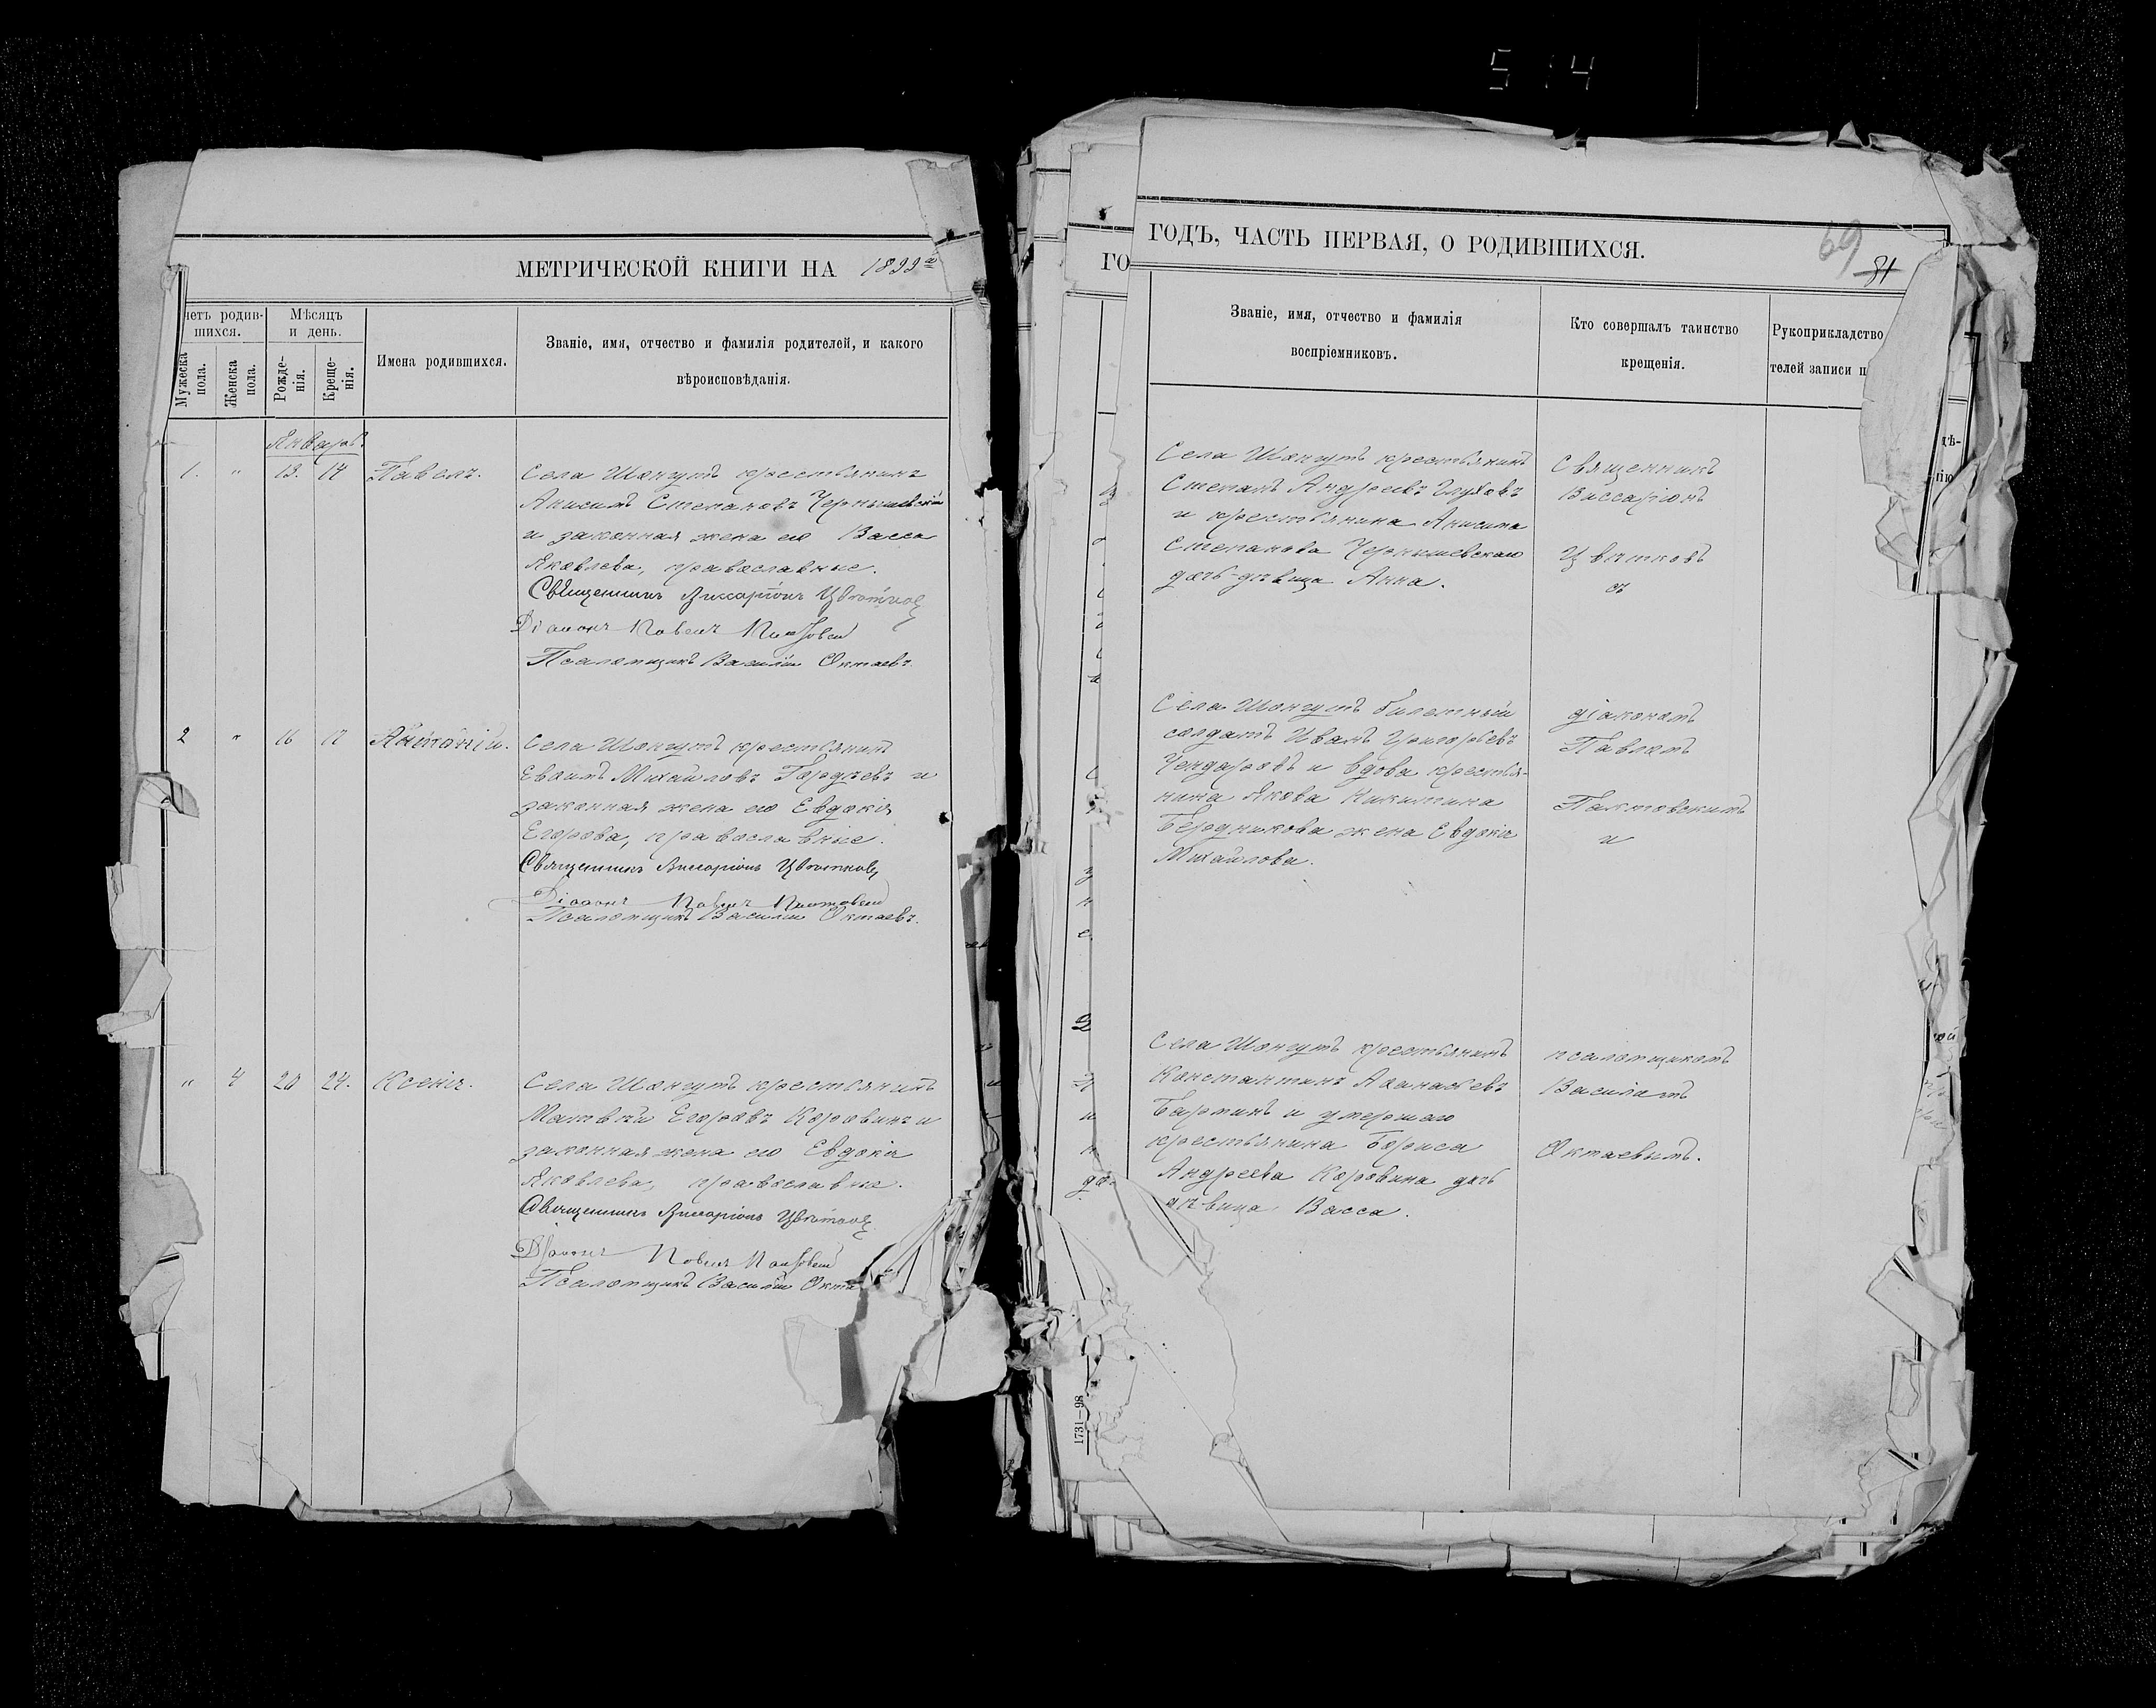 5 14
МЕТРИЧЕСКОЙ КНИГИ НА 1899
четъ родив-
шихся.
Мѣсяцъ
и день.
Мужеска
пола.
Женска
пола.
Рожде-
нія.
Креще-
нія.
Имена родившихся.
Званіе, имя, отчество и фамилія родителей, и какого
вѣроисповѣданія.
Январь.
1. " 13. 14 Павелъ. Села Шонгутъ крестьянинъ
Анисимъ Степановъ Чернышевскій
и законная жена его Васса
Яковлева, православные.
Священникъ Виссаріонъ Цвѣтковъ
Діаконъ Павелъ
Псаломщикъ Василій Октаевъ.
2 " 16 17 Антоній. Села Шонгутъ крестьянинъ
Евѳимъ Михайловъ Гордѣевъ и
законная жена его Евдокія
Егорова, православные.
Священникъ Виссаріонъ Цвѣтковъ
Діаконъ Павелъ
Псаломщикъ Василій Октаевъ.
" 4 20 24. Ксенія. Села Шонгутъ крестьянинъ
Матвѣй Егоровъ Коровинъ и
законная жена его Евдокія
Яковлева, православные.
Священникъ Виссаріонъ Цвѣтковъ
Діаконъ Павелъ
Псаломщикъ Василій Окта
ГОДЪ, ЧАСТЬ ПЕРВАЯ, О РОДИВШИХСЯ.
69
81
ГО
Званіе, имя, отчество и фамилія
воспріемниковъ.
Кто совершалъ таинство
крещенія.
Рукоприкладство
телей записи п
Села Шонгутъ крестьянинъ
Степанъ Андреевъ Глуховъ
и крестьянина Анисима
Степанова Чернышевскаго
дочь-дѣвица Анна.
Священникъ
Виссаріонъ
Цвѣтковъ
съ
Села Шонгутъ билетный
солдатъ Иванъ Григорьевъ
Чендаровъ и вдова крестья-
нина Якова Никитина
Бердникова жена Евдокія
Михайлова.
діакономъ
Павломъ
Пактовскимъ
и
Села Шонгутъ крестьянинъ
Константинъ Аѳанасьевъ
Барминъ и умершаго
крестьянина Бориса
Андреева Коровина дочь
дѣвица Васса.
псаломщикомъ
Василіемъ
Октаевымъ.
1731—98